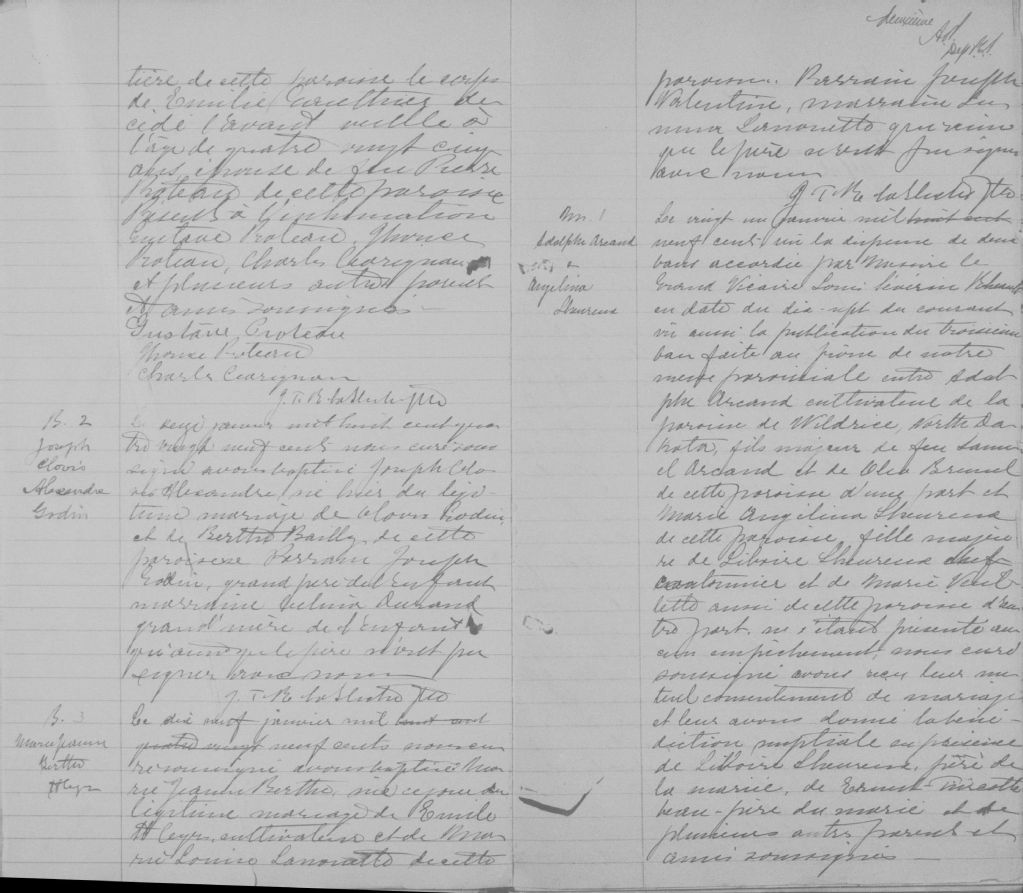 tière de cette paroisse le corps
de Emilie Gauthier dé
cédé l'avant veille à
l'âge de quatre vingt cinq
ans, épouse de feu Pierre
Proteau de cette paroisse
Présents à l'inhumation
Gustave Proteau, Thomse
Proteau, Charles Charignan
et plusieurs autres parents
et amis soussignés
Gustave Proteau
Proteau
Charles Charignan
J. T. R. Ptre
B. 2
Joseph
Clovis
Alexandre
Godin
Le seize janvier mil huit cent qua
tre vingt neuf cents nous curé sous
signé avons baptisé Joseph Clo
vis Alexandre, né hier du légi-
time mariage de Clovis Godin
et de Berthe Bailly de cette
paroisse Parrain Joseph
Godin, grand père de l'enfant
marraine Durand
grand'mère de l'enfant
qui ainsi que le père n'ont pu
signer avec nous
J. T. R. Ptre
B. 3
Marie Jeanne
Berthe
Le dix neuf janvier mil huit cent
quatre vingt neuf cents nous cu
ré soussigné avons baptisé Ma
rie Jeanne Berthe, née ce jour du
légitime mariage de Emile
cultivateur et de Ma
rie Louise Lanouette de cette
deuxième
paroisse. Parrain Joseph
Valentine, marraine
Lanouette qui ainsi
que le père n'ont pu signer
avec nous
J. T. R. Ptre
M. 1
Adolphe Arcand
&
Angelina
Lheureux
Le vingt un janvier mil huit cent
neuf cent un la dispense de deux
bans accordée par Messire le
Grand Vicaire Louis Séverin
en date du dix-sept du courant
vu aussi la publication du troisième
ban faite au prône de notre
messe paroissiale entre Adol
phe Arcand cultivateur de la
paroisse de Wildrice, North Da
kota, fils majeur de feu Samu
el Arcand et de Brunel
de cette paroisse d'une part et
Marie Angelina Lheureux
de cette paroisse, fille majeu
re de Liboire Lheureux chef
cantonnier et de Marie
aussi de cette paroisse d'au
tre part, ne s'étant présenté au
cun empêchement, nous curé
soussigné avons reçu leur mu
tuel consentement de mariage
et leur avons donné la béné-
diction nuptiale en présence
de Liboire Lheureux, père de
la mariée, de Ernest
beau-père du marié et de
plusieurs autres parents et
amis soussignés